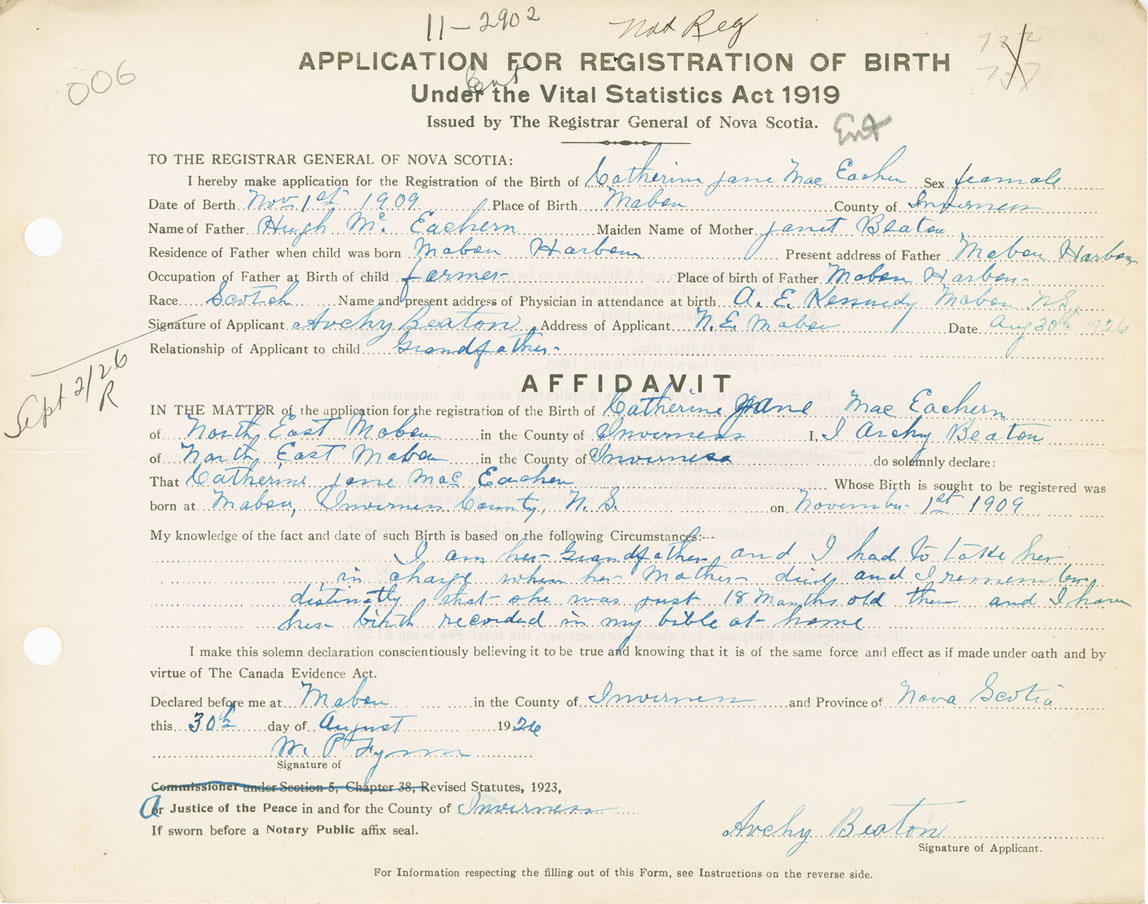 11-2902 Not Reg
006
APPLICATION FOR REGISTRATION OF BIRTH
Under the Vital Statistics Act 1919
Issued by The Registrar General of Nova Scotia. Ent
TO THE REGISTRAR GENERAL OF NOVA SCOTIA:
I hereby make application for the Registration of the Birth of Catherine Jane Mac Eachen Sex female
Date of Berth Nov. 1st 1909 Place of Birth Mabou County of Inverness
Name of Father Hugh Mc Eachern Maiden Name of Mother Janet Beaton
Residence of Father when child was born Mabou Harbour Present address of Father Mabou Harbour
Occupation of Father at Birth of child farmer Place of birth of Father Mabou Harbour
Race Scotish Name and present address of Physician in attendance at birth A. E. Kennedy Mabou N.S.
Signature of Applicant Archy Beaton Address of Applicant N.E. Mabou Date Aug 30th 1926
Relationship of Applicant to child Grandfather
Sept 2/26
R
AFFIDAVIT
IN THE MATTER of the application for the registration of the Birth of Catherine Jane Mac Eachern
of North East Mabou in the County of Inverness I, I Archy Beaton
of North East Mabou in the County of Inverness do solemnly declare:
That Catherine Jane Mac Eachen Whose Birth is sought to be registered was
born at Mabou, Inverness County, N.S. on November 1st 1909
My knowledge of the fact and date of such Birth is based on the following Circumstances:--
I am her Grandfather and I had to take her
in charge when her Mother died and I remember
distinctly that she was just 18 Months old then and I have
her birth recorded in my bible at home
I make this solemn declaration conscientiously believing it to be true and knowing that it is of the same force and effect as if made under oath and by
virtue of The Canada Evidence Act.
Declared before me at Mabou in the County of Inverness and Province of Nova Scotia
this 30th day of August 1926
W. P. Flynn
Signature of
Commissioner under Section 5, Chapter 38, Revised Statutes, 1923,
Or Justice of the Peace in and for the County of Inverness
If sworn before a Notary Public affix seal.
Archy Beaton
Signature of Applicant.
For Information respecting the filling out of this Form, see Instructions on the reverse side.